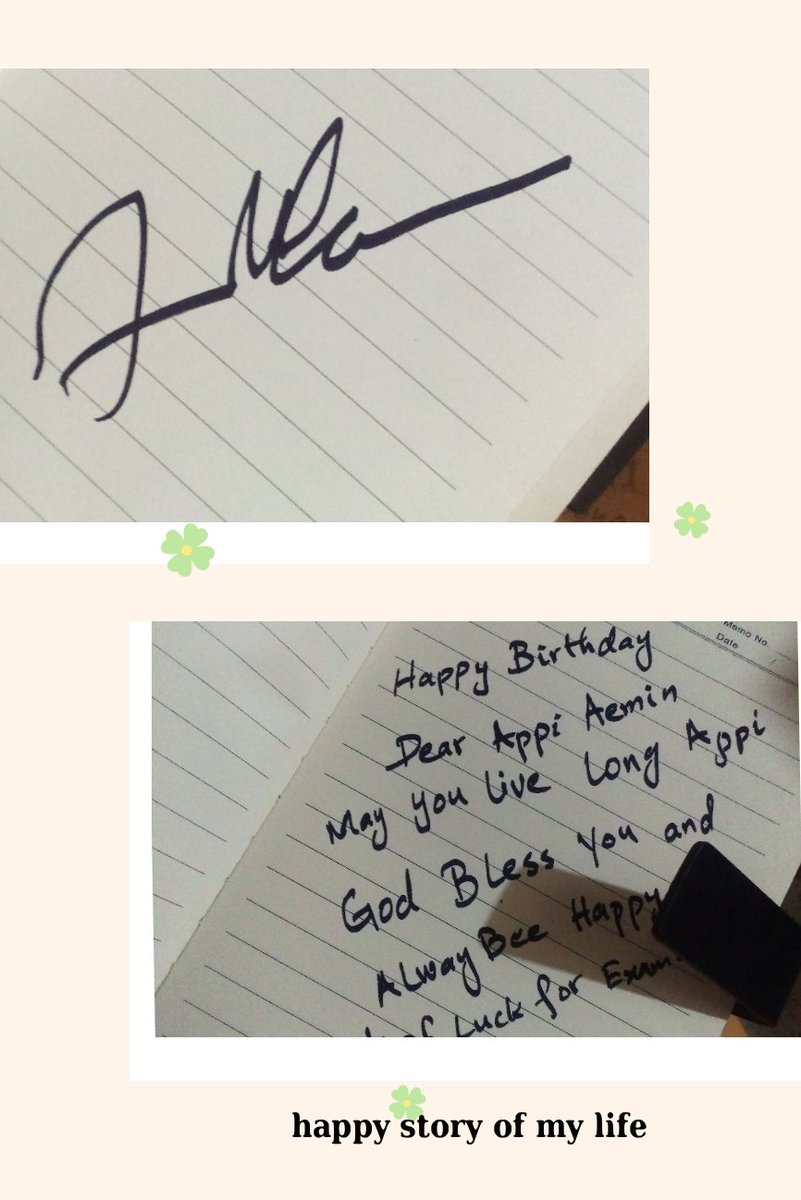 Memo No.
Date
Happy Birthday
Dear Appi Aemin
May you Live Long Appi
God Bless You and
ALway Bee Happy
of Luck for Exam.
happy story of my life